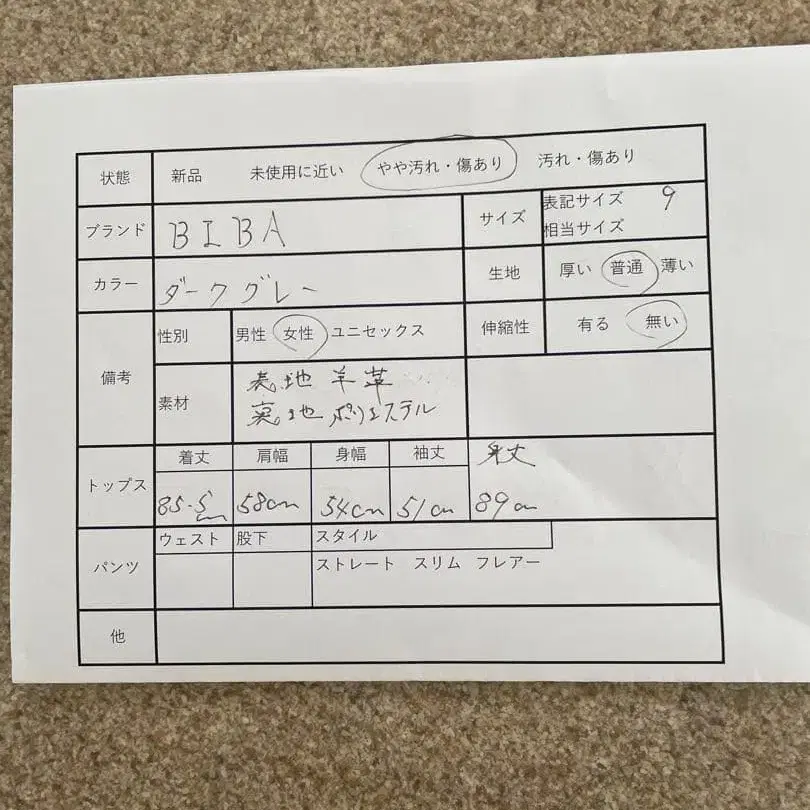 状態 新品 未使用に近い やや汚れ・傷あり 汚れ・傷あり
ブランド BIBA サイズ 表記サイズ 9
相当サイズ
カラー ダークグレー 生地 厚い 普通 薄い
備考 性別 男性 女性 ユニセックス 伸縮性 有る 無い
素材 表地 羊革
裏地 ポリエステル
トップス 着丈 肩幅 身幅 袖丈 身丈
85.5cm 58cm 54cm 51cm 89cm
パンツ ウェスト 股下 スタイル
ストレート スリム フレアー
他